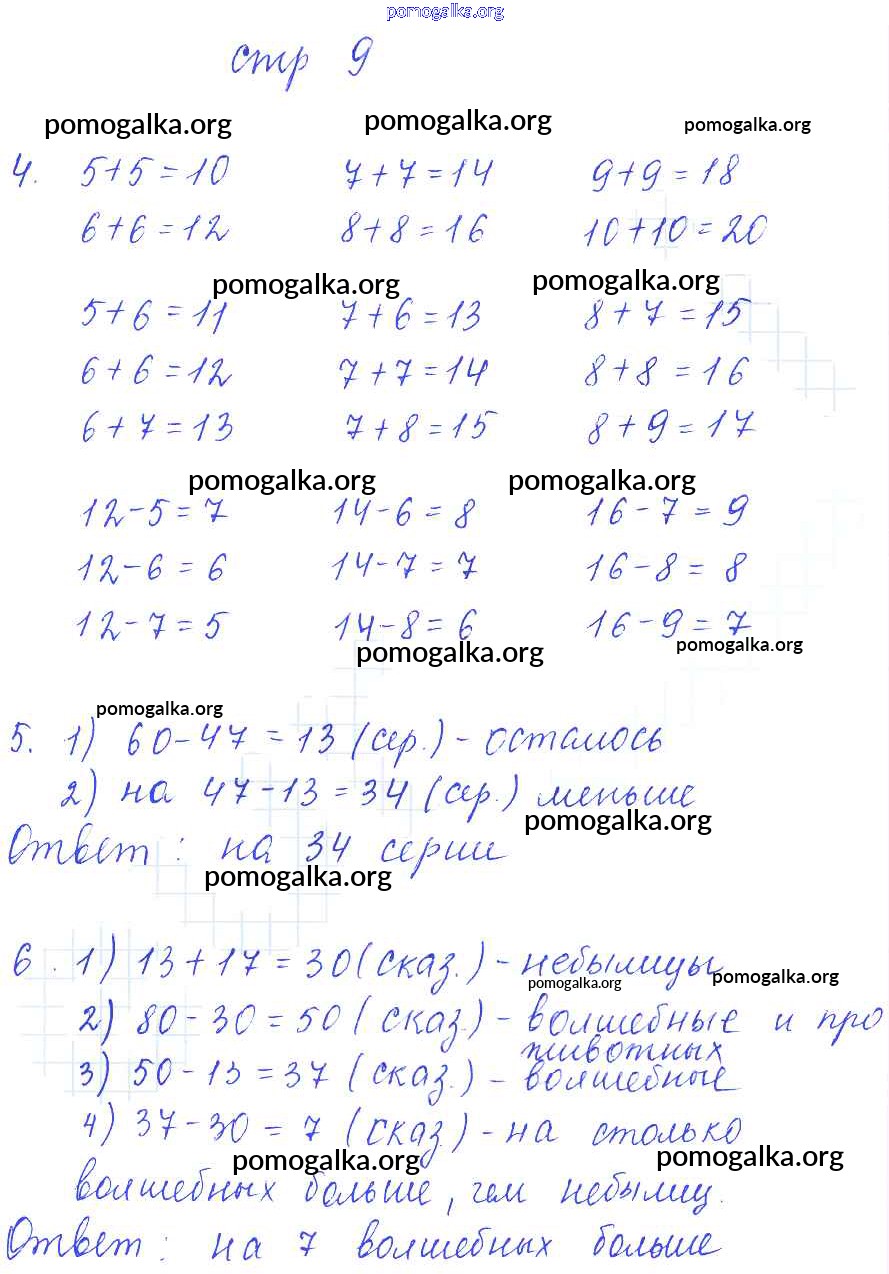 pomogalka.org
стр 9
pomogalka.org pomogalka.org pomogalka.org
4. 5+5=10 7+7=14 9+9=18
6+6=12 8+8=16 10+10=20
pomogalka.org pomogalka.org
5+6=11 7+6=13 8+7=15
6+6=12 7+7=14 8+8=16
6+7=13 7+8=15 8+9=17
pomogalka.org pomogalka.org
12-5=7 14-6=8 16-7=9
12-6=6 14-7=7 16-8=8
12-7=5 14-8=6 16-9=7
pomogalka.org pomogalka.org
pomogalka.org
5. 1) 60-47=13 (сер.) - осталось
2) на 47-13=34 (сер.) меньше
pomogalka.org
Ответ: на 34 серии
pomogalka.org
6. 1) 13+17=30 (сказ.) - небылицы
pomogalka.org pomogalka.org
2) 80-30=50 (сказ.) - волшебные и про
животных
3) 50-13=37 (сказ.) - волшебные
4) 37-30=7 (сказ.) - на столько
pomogalka.org pomogalka.org
волшебных больше, чем небылиц.
Ответ: на 7 волшебных больше